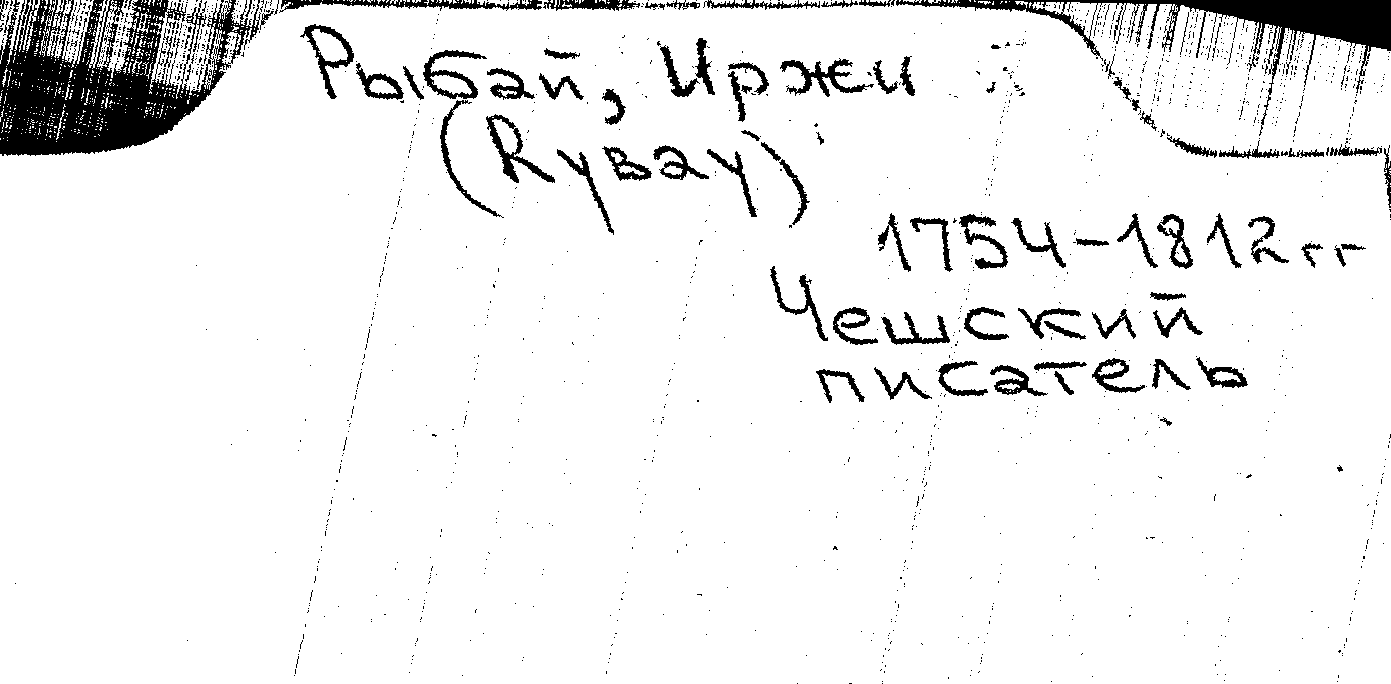 Рыбай, Иржи
(Ryвay)
1754-1812 гг
Чешский
писатель